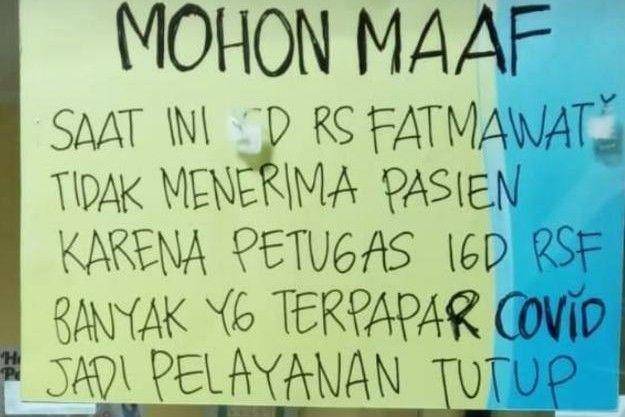 MOHON MAAF
SAAT INI D RS FATMAWATI
TIDAK MENERIMA PASIEN
KARENA PETUGAS IGD RSF
BANYAK YG TERPAPAR COVID
JADI PELAYANAN TUTUP